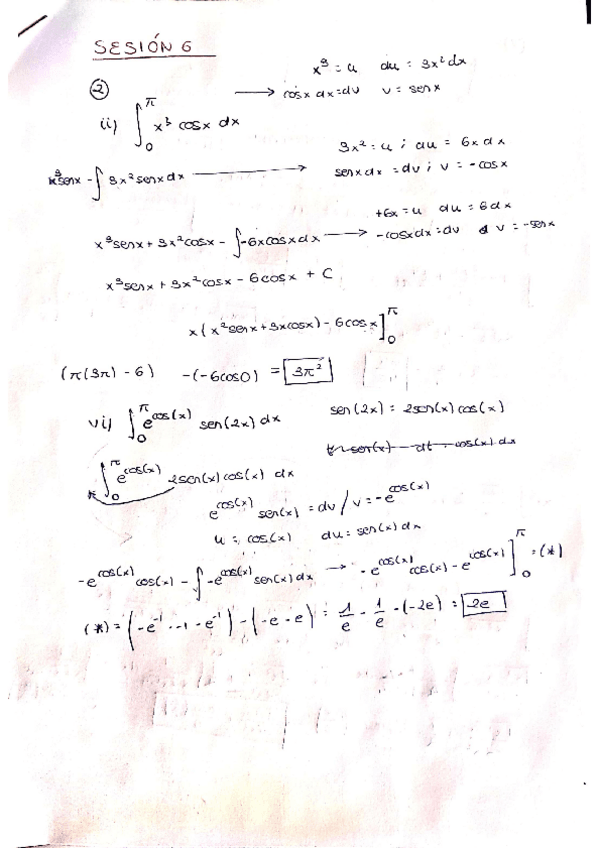 SESIÓN 6
x³ = u   du = 3x² dx
② → cosx dx = dv   v = senx
ii) ∫₀^π x³ cosx dx
3x² = u ; du = 6x dx
x³senx - ∫ 3x² senx dx → senx dx = dv ; v = -cosx
+6x = u   du = 6dx
x³senx + 3x²cosx - ∫-6xcosxdx → -cosxdx = dv   v = -senx
x³senx + 3x²cosx - 6cosx + C
x(x²senx + 3xcosx) - 6cosx]₀^π
(π(3π) - 6)   -(-6cos0) = 3π²
vi) ∫₀^π e^cos(x) sen(2x) dx   sen(2x) = 2sen(x)cos(x)
∫₀^π e^cos(x) 2sen(x)cos(x) dx
e^cos(x) sen(x) = dv / v = -e^cos(x)
u = cos(x)   du = sen(x) dx
-e^cos(x) cos(x) - ∫ -e^cos(x) sen(x) dx → -e^cos(x) cos(x) - e^cos(x)]₀^π = (*)
(*) = (-e⁻¹ · -1 - e⁻¹) - (-e - e) = 1/e - 1/e - (-2e) = 2e